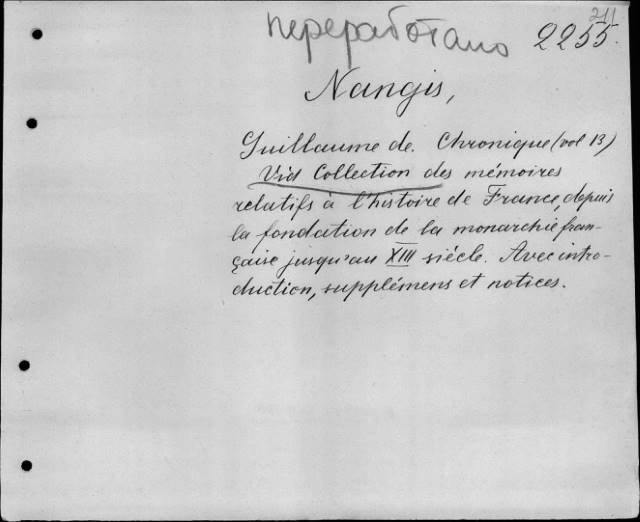 211
переработано 2255.
Nangis,
Guillaume de. Chronique (vol 13)
Vid Collection des mémoires
relatifs à l'histoire de France, depuis
la fondation de la monarchie fran-
çaise jusqu'au XIII siécle. Avec intro-
duction, supplémens et notices.